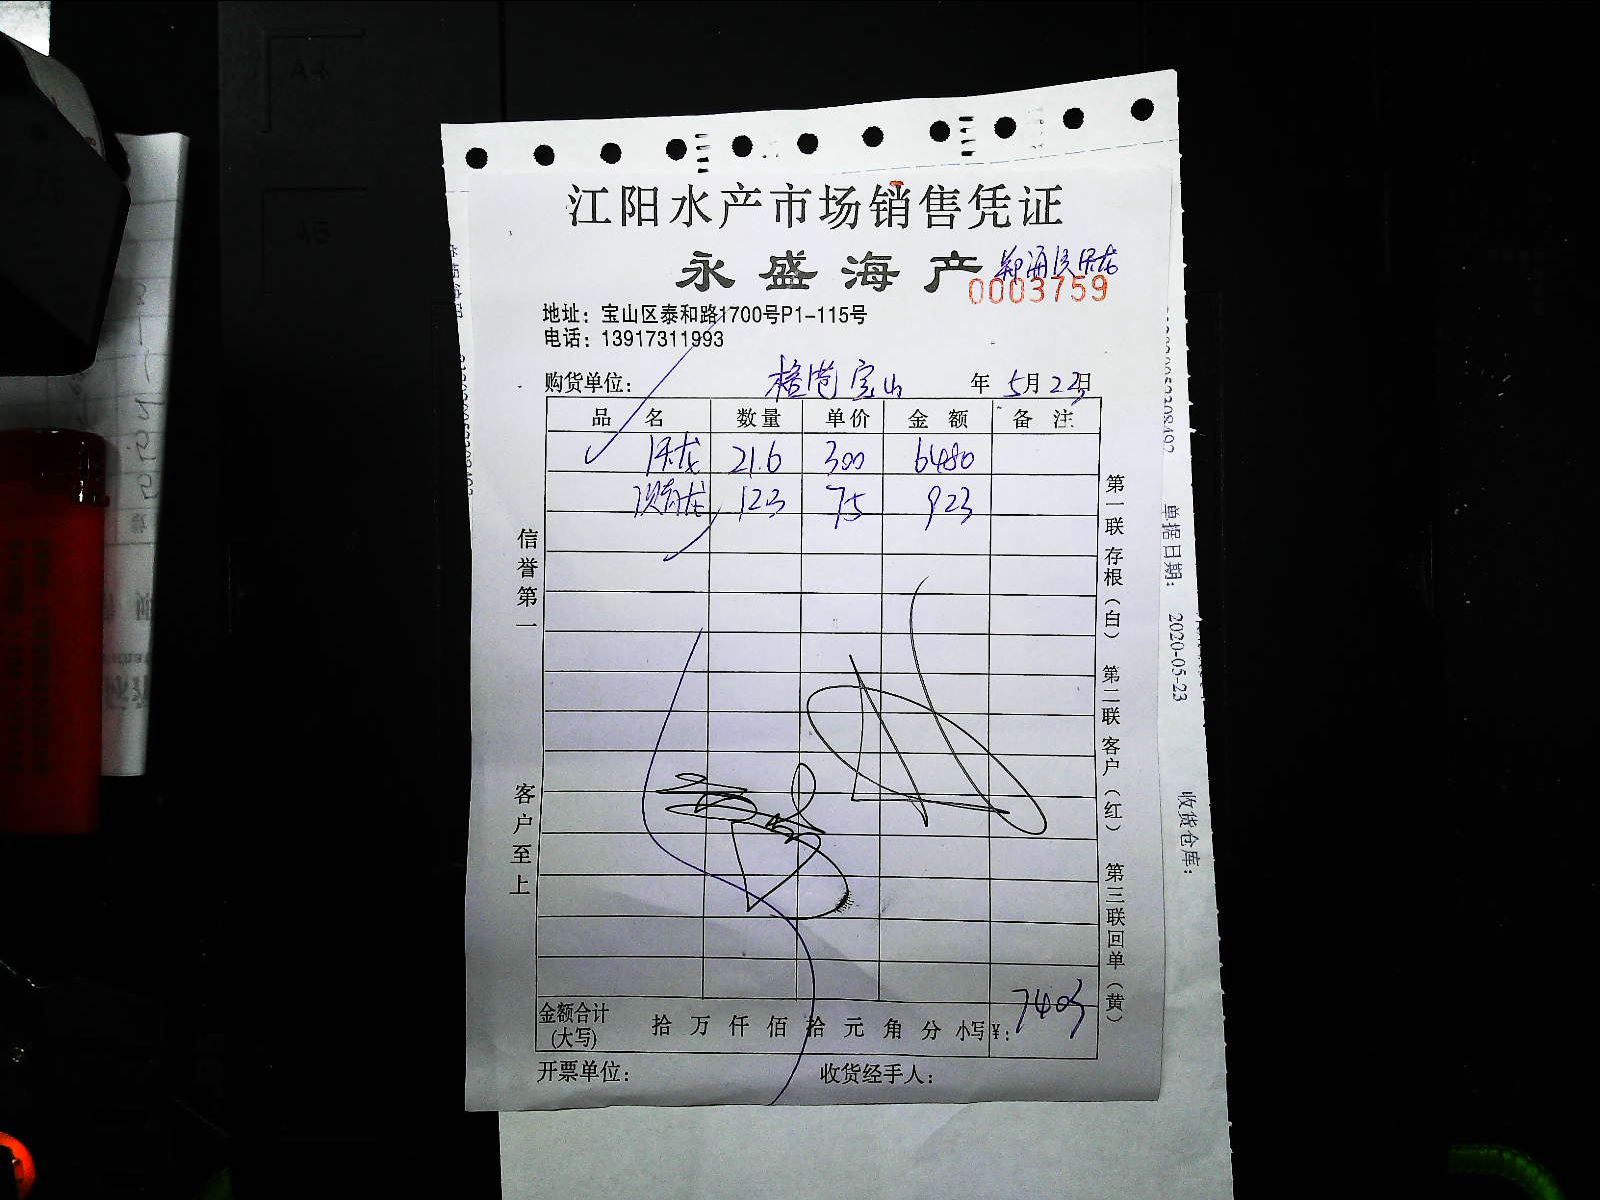 江阳水产市场销售凭证
永盛海产
0003759
地址：宝山区泰和路1700号P1-115号
电话：13917311993
购货单位： 宝山 年 5月23日
品 名 数量 单价 金额 备注
21.6 300 6480
龙 123 75 923
信誉第一
客户至上
第一联存根（白） 第二联客户（红） 第三联回单（黄）
金额合计(大写) 拾 万 仟 佰 拾 元 角 分 小写¥： 7403
开票单位： 收货经手人：
单据日期： 2020-05-23
收货仓库：